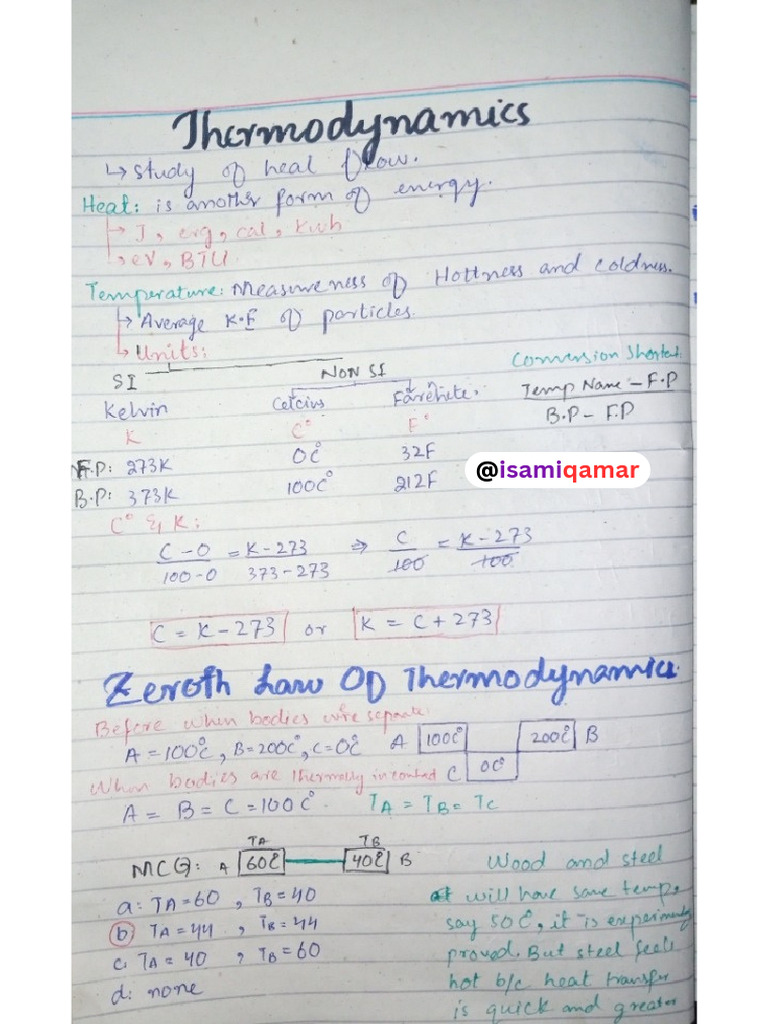 Thermodynamics
↳ Study of heat flow.
Heat: is another form of energy.
→ J, erg, cal, kwh
→ eV, BTU
Temperature: Measureness of Hottness and coldness.
↳ Average K.E of particles.
↳ Units:
Conversion Shortcut:
SI NON SI
Temp Name - F.P
B.P - F.P
Kelvin Celcius Farenhite:
K C° F°
F.P: 273K 0C° 32F
@isamiqamar
B.P: 373K 100C° 212F
C° & K:
C - 0 = K - 273 ⇒ C = K - 273
100-0 373-273 100 100
C = K - 273 or K = C + 273
Zeroth Law Of Thermodynamics.
Before when bodies were separate:
A = 100C°, B = 200C°, C = 0C° A 100C° 200C° B
When bodies are thermally in contact C 0C°
A = B = C = 100C°. TA = TB = TC
TA TB
MCQ: A 60C° 40C° B
a: TA = 60 , TB = 40
b) TA = 44 , TB = 44
c. TA = 40 , TB = 60
d: none
Wood and steel
at will have same temp,
say 50C°, it is experimently
proved. But steel feels
hot b/c heat transfer
is quick and greater